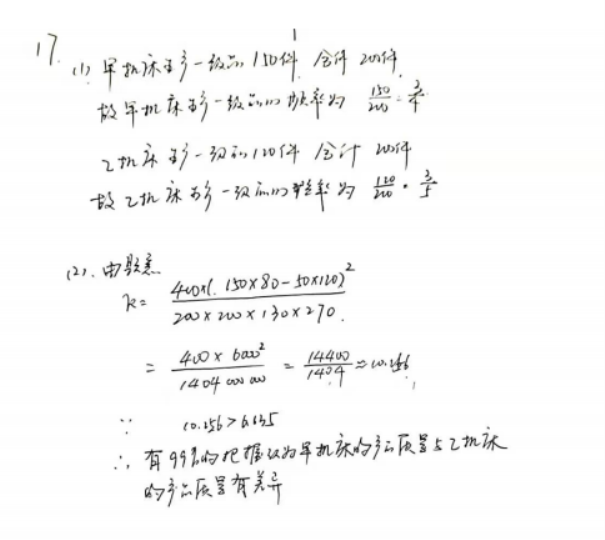 17.
(1) 甲机床生产一级品150件 合计 200件
故甲机床生产一级品的频率为 150/200 = 3/4
乙机床生产一级品120件 合计 200件
故乙机床生产一级品的频率为 120/200 = 3/5
(2). 由题意
k = 400×(150×80-50×120)² / 200×200×130×270
= 400×6000² / 1404000000 = 14400/1404 ≈ 10.256
∵ 10.256 > 6.635
∴ 有99%的把握认为甲机床的产品质量与乙机床
的产品质量有差异